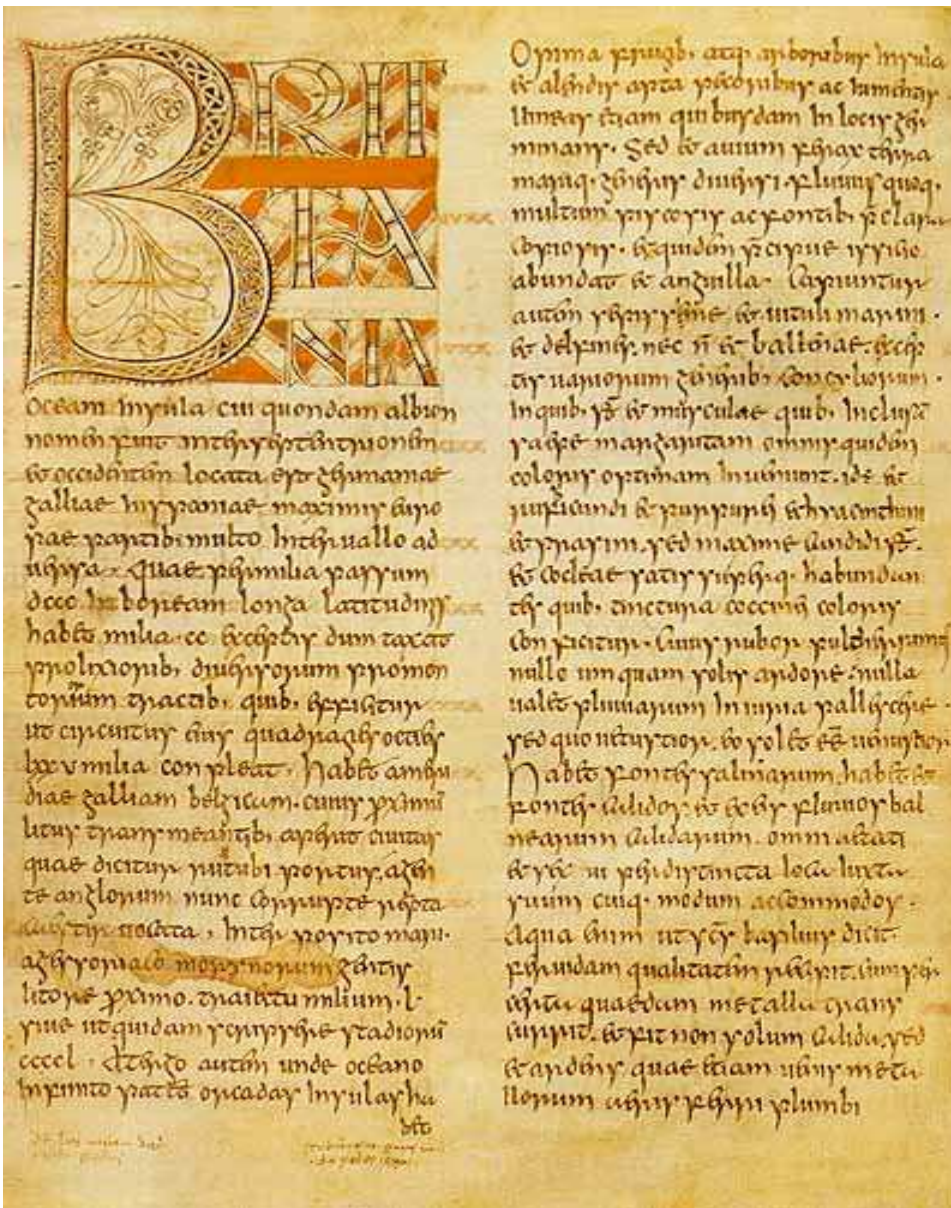 BRIT
TA
NIA
oceani insula cui quondam albion
nomen fuit inter septentrionem
et occidentem locata est germaniae
galliae hispaniae maximis euro
pae partib· multo interuallo ad
uersa· quae per milia passuum
dccc in boream longa latitudinis
habet milia· cc exceptis dum taxat
prolixiorib· diuersorum promon
toriorum tractib· quib· efficitur
ut circuitus eius quadragies octies
lxxv milia conpleat· habet a meri
diae galliam belgicam· cuius proximū
litus transmeantib· aperit ciuitas
quae dicitur rutubi portus· a gen
te anglorum nunc corrupte repta
caestir uocata· interposito mari·
a gessoriaco morynorum gentis
litore proximo· traiectu milium· l·
siue ut quidam scripsere stadiorū
ccccl· A tergo autem unde oceano
infinito patet orcadas insulas ha
bet
Opima frugib· atq· arboribus insula
et alendis apta pecoribus ac iumentis
uineas etiam quibusdam in locis ger
minans· Sed et auium ferax terra
mariq· generis diuersi· fluuiis quoq·
multum piscosis ac fontib· p̄clara
copiosis· et quidem p̄cipue issicio
abundat et anguilla· Capiuntur
autem sepissime et uituli marini·
et delfines· nec n̄ et ballenae· excep
tis uariorum generib· concyliorum·
in quib· s̄t et musculae quib· inclusā
saepe margaritam omnis quidem
coloris optimam inueniunt· id ē et
rubicundi et purpurei et hyacinthini
et prasini· sed maxime candidi s̄t·
et cocleae satis superq· habundan
tes quib· tinctura coccinei coloris
conficitur· cuius rubor pulcherrimus
nullo umquam solis ardore· nulla
ualet pluuiarum iniuria pallescere
sed quo uetustior· eo solet eē̄ uenustior
Habet fontes salinarum· habet et
fontes calidos· et ex eis fluuios bal
nearum calidarum· omni aetati
et sexui per distincta loca iuxta
suum cuiq· modum accommodos·
Aqua enim ut scs̄ basilius dicit·
feruidam qualitatem recipit· cum per
certa quaedam metalla trans
currit· et fit non solum calida· sed
et ardens quae etiam uenis meta
llorum aeris ferri plumbi